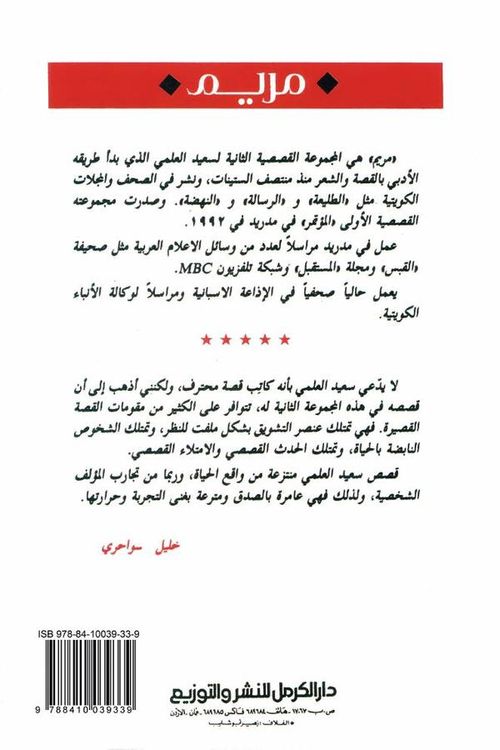 مريم
«مريم» هي المجموعة القصصية الثانية لسعيد العلمي الذي بدأ طريقه
الأدبي بالقصة والشعر منذ منتصف الستينات، ونشر في الصحف والمجلات
الكويتية مثل «الطليعة» و «الرسالة» و «النهضة». وصدرت مجموعته
القصصية الأولى «المؤتمر» في مدريد في ١٩٩٢.
عمل في مدريد مراسلاً لعدد من وسائل الاعلام العربية مثل صحيفة
«القبس» ومجلة «المستقبل» وشبكة تلفزيون MBC.
يعمل حالياً صحفياً في الإذاعة الاسبانية ومراسلاً لوكالة الأنباء
الكويتية.
★ ★ ★ ★ ★
لا يدّعي سعيد العلمي بأنه كاتب قصة محترف، ولكنني أذهب إلى أن
قصصه في هذه المجموعة الثانية له، تتوافر على الكثير من مقومات القصة
القصيرة. فهي تمتلك عنصر التشويق بشكل ملفت للنظر، وتمتلك الشخوص
النابضة بالحياة، وتمتلك الحدث القصصي والامتلاء القصصي.
قصص سعيد العلمي منتزعة من واقع الحياة، وربما من تجارب المؤلف
الشخصية، ولذلك فهي عامرة بالصدق ومترعة بغنى التجربة وحرارتها.
خليل سواحري
ISB 978-84-10039-33-9
9 788410 039339
دار الكرمل للنشر والتوزيع
ص.ب ١٧١٦٧ - هاتف ٦٨٩٦٨٤ فاكس ٦٨٩٦٨٥ - عمان - الأردن
• الغلاف: زهير أبو شايب